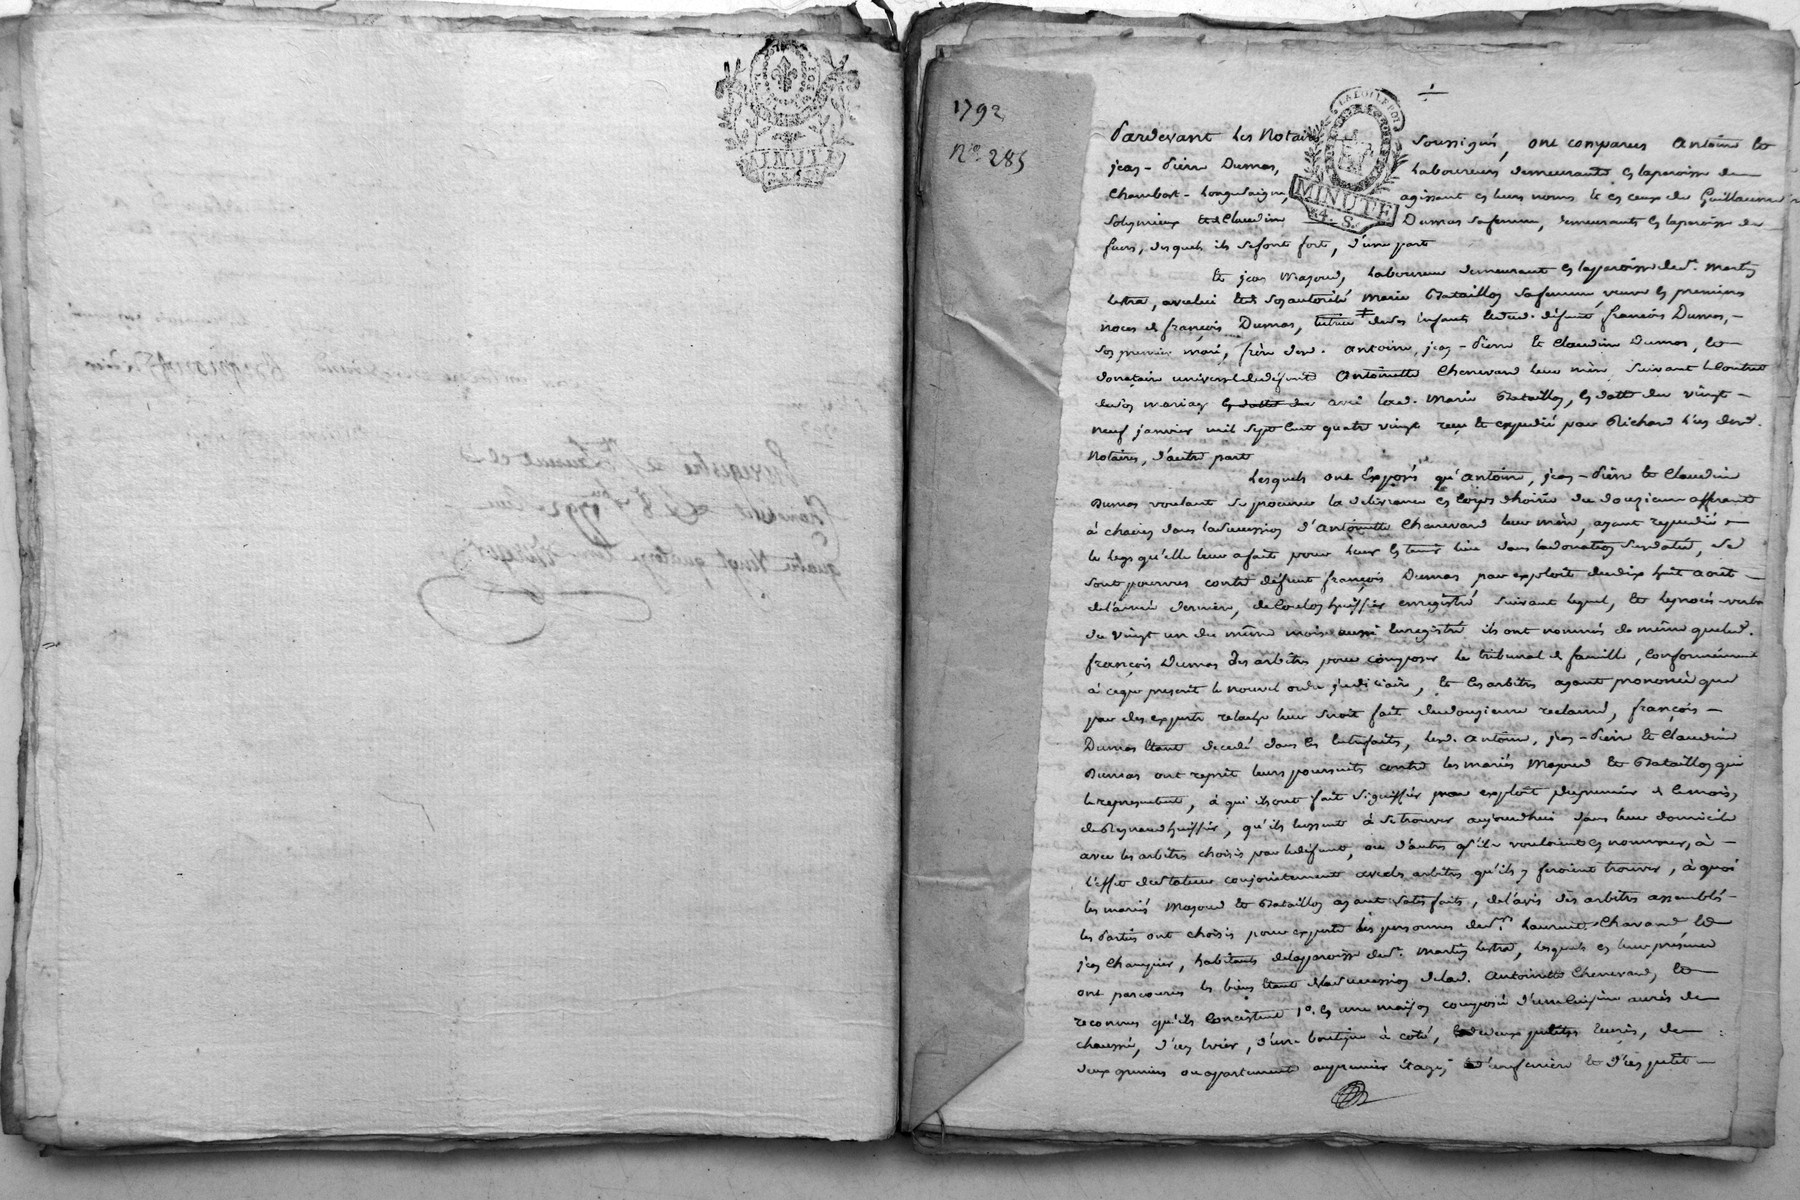 MINUTE
1792
N.° 285
LA LOI LE ROI
MINUTE
4. S.
Pardevant Les Notaires Soussignés, ont comparus Antoine et
jean-Pierre Dumas, Laboureurs demeurants en la paroisse de
Chambost-Longesaigne, agissant en leurs noms et en ceux de Guillaume
Solymieux et de Claudine Dumas sa femme, demeurants en la paroisse de
feurs, desquels ils se font fort, d'une part
Et jean Mazoud, Laboureur demeurant en la paroisse de St. Martin
Lestra, avec lui et de son autorité Marie Bataillon sa femme veuve en premieres
noces de françois Dumas, tutrice de ses Enfants et dud. défunt françois Dumas,
son premier mari, frère desd. Antoine, jean-Pierre et Claudine Dumas, et
donataire universel de défunte Antoinette Chenevard leur mère, suivant le Contrat
de son mariage avec lad. Marie Bataillon, en datte du vingt-
neuf janvier mil sept cent quatre vingt reçu et expédié par Richard L'un desd.
Notaires, d'autre part
Lesquels ont Exposés qu'Antoine, jean-Pierre et Claudine
Dumas voulant se procurer la délivrance en Corps d'hoirie du douzieme afférant
à chacun dans la Succession d'Antoinette Chenevard leur mère, ayant repudié
le legs qu'elle leur a fait pour leur en tenir lieu dans la donation Susdatée, se
sont pourvus contre défunt françois Dumas par exploit du dix huit août
de l'année derniere, de Coulon huissier enregistré suivant lequel, et le procès-verbal
du vingt un du même mois aussi Enregistré ils ont nommés de même que led.
françois Dumas des arbitres pour composer Le tribunal de famille, Conformément
à ce que prescrit le nouvel ordre judiciaire, Et les arbitres ayant prononcé que
par des experts relache leur seroit fait du douzieme reclamé, françois
Dumas étant decedé dans les entrefaits, lesd. Antoine, jean-Pierre et Claudine
Dumas ont reprit leurs poursuites contre les mariés Mazoud et Bataillon qui
le représentent, à qui ils ont fait signiffier par exploit du premier de ce mois,
de Reynaud huissier, qu'ils eussent à se trouver aujourdhui dans leur domicile
avec les arbitres choisis par le défunt, ou d'autres qu'ils voudroient en nommer, à
l'effet de statuer conjointement avec les arbitres qu'ils y feroient trouver, à quoi
les mariés Mazoud et Bataillon ayant satisfaits, de l'avis des arbitres assemblés
les Parties ont choisis pour experts les personnes de Srs. Laurent Chavand, et
jean Champier, habitants de la paroisse de St. Martin Lestra, lesquels en leur présence
ont parcourus les biens étant de la Succession de lad. Antoinette Chenevard, et
reconnus qu'ils Consistent 1°. en une maison composée d'une Cuisine au rès de
chaussée, d'un évier, d'une boutique à coté, de deux petites écuries, de
deux greniers ou appartements au premier étage, et d'un petit
Enregistré
quatre vingt quatorze